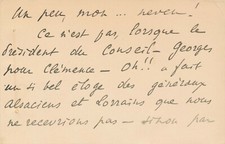 Un peu, mon ... neveu !
Ce n'est pas, lorsque le
Président du Conseil - Georges
pour Clémence - Oh!! a fait
un si bel éloge des généraux
alsaciens et lorrains que nous
ne recevrions pas - sinon par